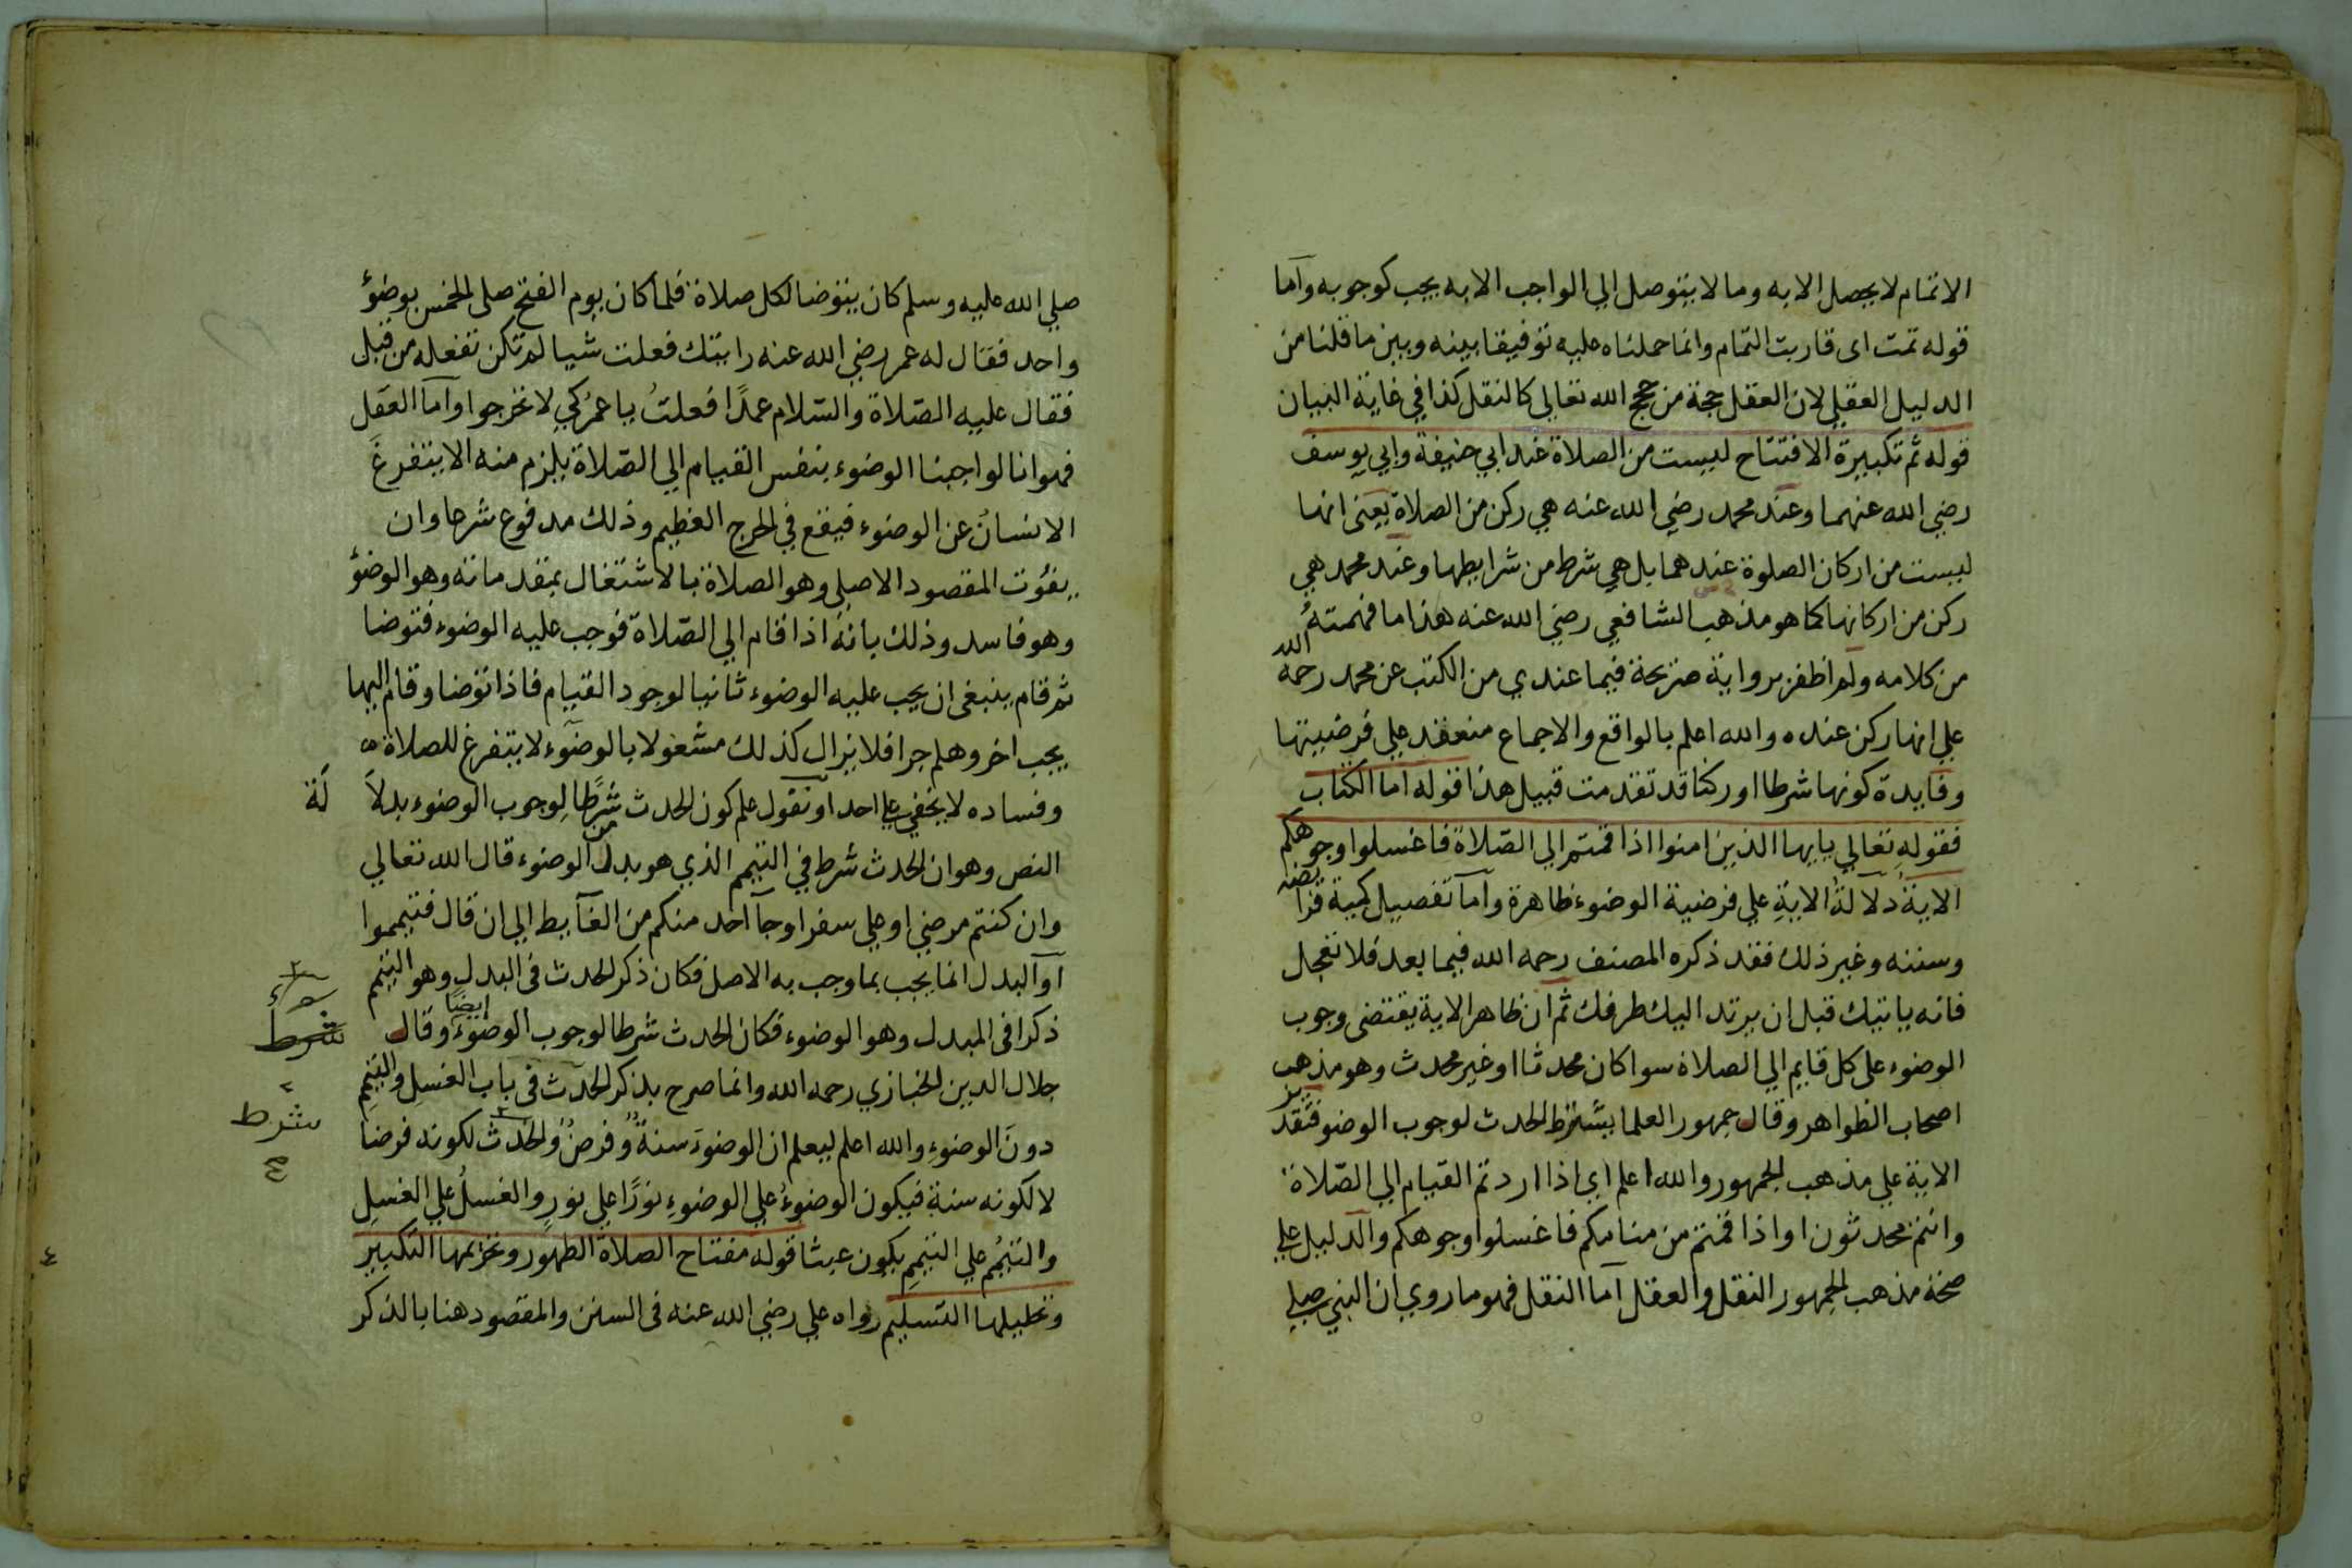 الاتمام لا يحصل الا به وما لا يتوصل الي الواجب الا به يجب كوجوبه وآما
قوله تمت اى قاربت التمام وانما حملناه عليه توفيقا بينه وبين ما قلنا من
الدليل العقلي لان العقل حجة من حجج الله تعالى كالنقل كذا في غاية البيان
قوله ثم تكبيرة الافتتاح ليست من الصلاة عند ابي حنيفة وابي يوسف
رضي الله عنهما وعند محمد رضي الله عنه هي ركن من الصلاة يعنى انها
ليست من اركان الصلوة عندهما بل هي شرط من شرايطها وعند محمد هي
ركن من اركانها كما هو مذهب الشافعي رضي الله عنه هذا ما فهمته
من كلامه ولم اظفر برواية صريحة فيما عندي من الكتب عن محمد رحمه الله
علي انها ركن عنده والله اعلم بالواقع والاجماع منعقد علي فرضيتها
وفايدة كونها شرطا او ركنا قد تقدمت قبيل هذا قوله اما الكتاب
فقوله تعالي يايها الذين امنوا اذا قمتم الي الصّلاة فاغسلوا وجوهكم
الايةَ دلالةُ الايةِ علي فرضية الوضوء ظاهرة وآما تفصيل كمية فرايضه
وسننه وغير ذلك فقد ذكره المصنف رحمه الله فيما بعد فلا تعجل
فانه ياتيك قبل ان يرتد اليك طرفك ثم ان ظاهر الاية يقتضى وجوب
الوضوء على كل قايم الي الصلاة سوا كان محدثا او غير محدث وهو مذهب
اصحاب الظواهر وقال جمهور العلما يشترط الحدث لوجوب الوضو فتقدير
الاية علي مذهب الجمهور والله اعلم اي اذا اردتم القيام الي الصّلاة
وانتم محدثون او اذا قمتم من منامكم فاغسلوا وجوهكم والدليل علي
صحة مذهب الجمهور النقل والعقل آما النقل فهو ما روي ان النبي صلي
صلي الله عليه وسلم كان يتوضا لكل صلاة فلما كان يوم الفتح صلى الخمس بوضؤ
واحد فقال له عمر رضي الله عنه رايتك فعلت شيا لم تكن تفعله من قبل
فقال عليه الصّلاة والسّلام عمدًا فعلتُ يا عمرُ كي لا تحرجوا وآما العقل
فهو انا لو اوجبنا الوضوء بنفس القيام الي الصّلاة يلزم منه الا يتفرغَ
الانسانُ عن الوضوء فيقع في الحرج العظيم وذلك مدفوع شرعا وان
يفوُت المقصود الاصلي وهو الصلاة بالاشتغال بمقدماته وهو الوضؤ
وهو فاسد وذلك بانه اذا قام الي الصّلاة فوجب عليه الوضوء فتوضا
ثم قام ينبغى ان يجب عليه الوضوء ثانيا لوجود القيام فاذا توضا وقام اليها
يجب اخر وهلم جرا فلا يزال كذلك مشغولا بالوضوء لا يتفرغ للصلاة ه
وفساده لا يخفي علي احد او تقول علم كون الحدث شرطًا لوجوب الوضوء بدلاَ لَة
النص وهو ان الحدث شرط في التيمم الذي هو بدل من الوضوء قال الله تعالي
وان كنتم مرضي او علي سفر او جآ احد منكم من الغآيط الي ان قال فتيمموا
آو البدل انما يجب بما وجب به الاصل فكان ذكر الحدث في البدل وهو التيمم
ذكرا فى المبدل وهو الوضوء فكان الحدث شرطا لوجوب الوضوء ايضًا وقال
شرط
جلال الدين الخبازي رحمه الله وانما صرح بذكر الحدث فى باب الغسل والتيمم
شرط
دونَ الوضوءِ والله اعلم ليعلم ان الوضوءَ سنةٌ وفرضٌ والحدث لكونه فرضا
لا لكونه سنة فيكون الوضوءُ علي الوضوءِ نورًا علي نورٍ والغسلُ علي الغسلِ
والتيمُّم علي التيممِ يكون عبثا قوله مفتاح الصلاة الطهور وتحريمها التكبير
وتحليلها التسليم رواه علي رضي الله عنه فى السنن والمقصود هنا بالذكر
٤